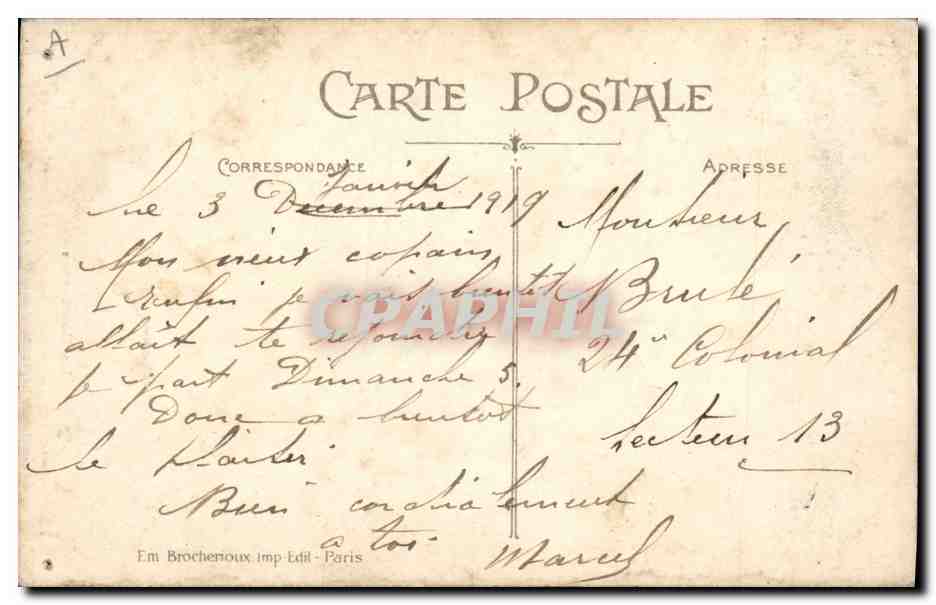 A
CARTE POSTALE
CORRESPONDANCE
ADRESSE
le 3 Decembre Janvier 1919
Mon vieux copain
enfin je vais bientot
allait te rejoindre
je part Dimanche 5.
Donc a bientot
le plaisir
Bien cordialement
a toi
Marcel
Monsieur
Brulé
24e Colonial
Secteur 13
Em Brocherioux Imp-Edit - Paris
CPAPHIL